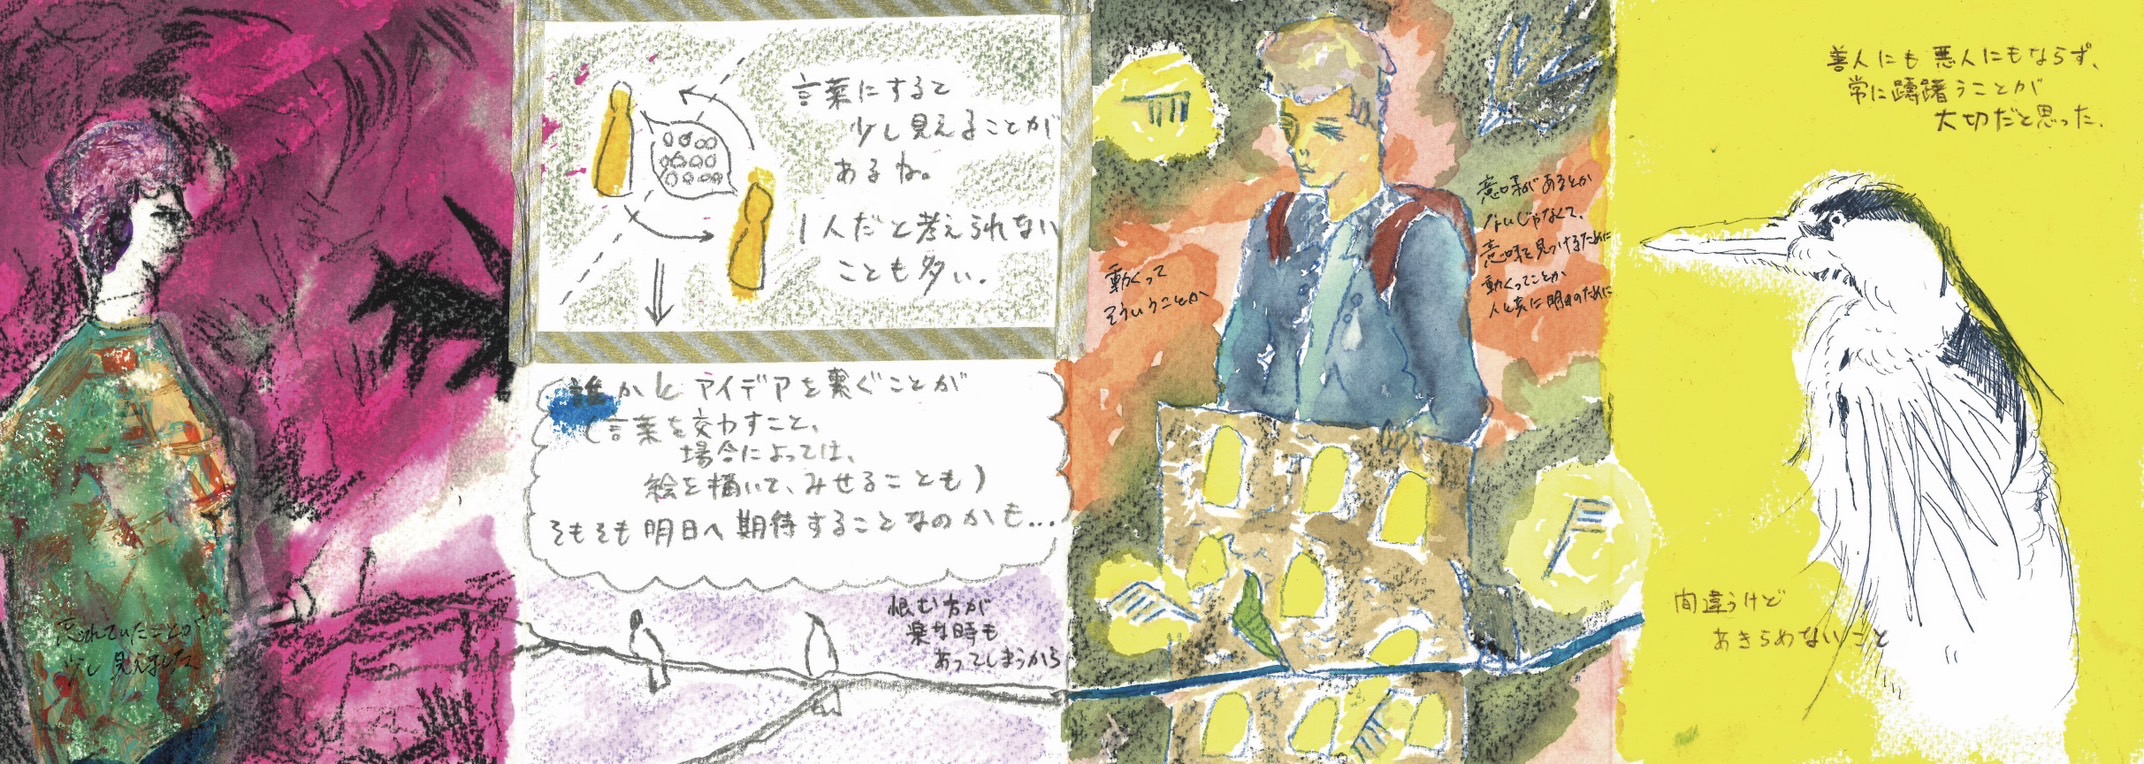 忘れていたことが
少し見えました
言葉にすると
少し見えることが
あるね。
1人だと考えられない
ことも多い。
誰かとアイデアを繋ぐことが
(言葉を交わすこと、
場合によっては、
絵を描いて、みせることも)
そもそも明日へ期待することなのかも…
恨む方が
楽な時も
あってしまうから
動くって
そういうことか
意味があるとか
ないじゃなくて、
意味を見つけるために
動くってことか
人と共に明日のために
善人にも悪人にもならず、
常に躊躇うことが
大切だと思った。
間違うけど
あきらめないこと